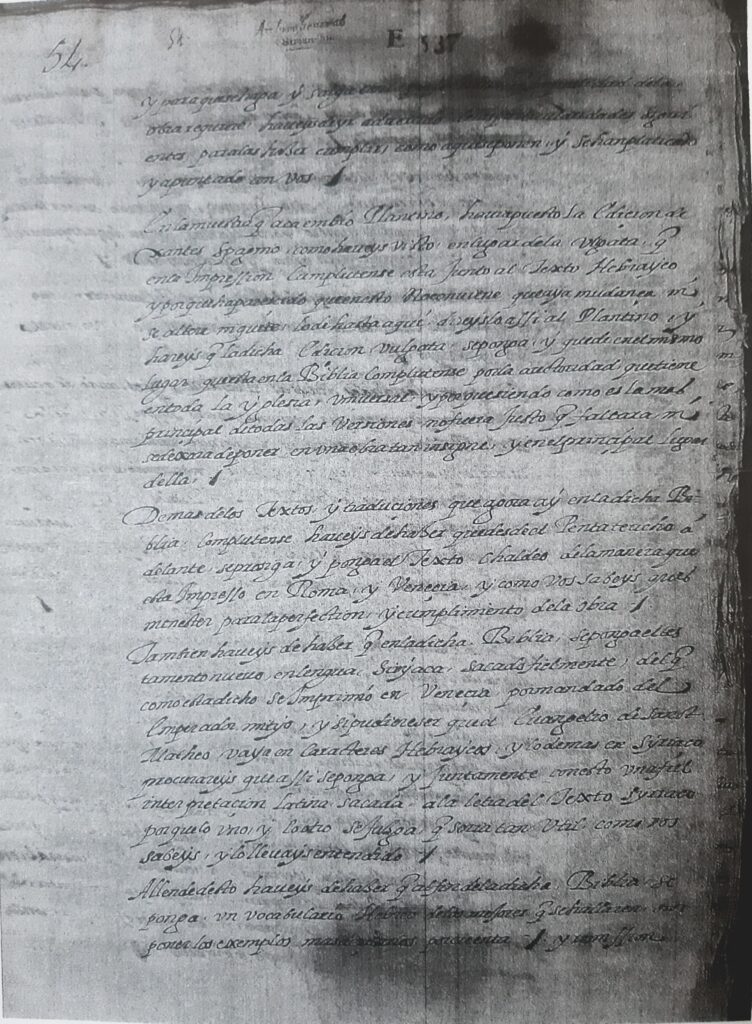 54.
54
Archivo General
Simancas
E 537
y para que se haga y salga con de la
obra requiere haveys de yr advertido de las particularidades siguí
entes para las haber cumplir como aqui se ponen, y se han platicado
y apuntado con vos
En la muestra q̃ aca embio Plantino, havia puesto la Edicion de
Xantes Pagnino como haveys visto en lugar de la Vulgata, q̃
en la Impression Complutense esta Junto al Texto Hebrayco
y porque ha parecido que en esto no conviene que aya mudança ni
se altere ni quite lo de hasta aqui direys lo assi al Plantino, y
hareys q̃ la dicha Edicion Vulgata se ponga, y quede en el mismo
lugar que esta en la Biblia Complutense por la auctoridad que tiene
en toda la yglesia universal y porque siendo como es la mas
principal de todas las Versiones no fuera Justo q̃ faltara ni
se dexara de poner en una obra tan insigne, y en el principal lugar
della.
Demas de los Textos, y traduciones que agora ay en la dicha Bi-
blia Complutense haveys de haber que desde el Pentateucho a
delante se ponga, y ponga el Texto Chaldeo de la manera que
esta Impresso en Roma, y Venecia, y como vos sabeys que es
menester para la perfection, y cumplimento de la obra
Tambien haveys de haber q̃ en la dicha Biblia se ponga el tes
tamento nuevo en lengua Siryaca sacado fielmente del q̃
como esta dicho se Imprimio en Venecia por mandado del
Emperador mi tyo, y si pudiere ser que el Evangelio de Sanct
Matheo vaya en Caracteres Hebraycos, y lo demas en Syriaco
procurareys que assi se ponga, y Juntamente con esto una fiel
interpretacion latina sacada a la letra del Texto Syriaco
porque lo uno, y lo otro se Juzga q̃ sera tan Util como vos
sabeys, y lo llevays entendido
Allende desto haveys de haber q̃ al fin de la dicha Biblia se
ponga un vocabulario Hebreo de los mejores q̃ se hallaren, sin
poner los exemplos mas por cuenta y remission